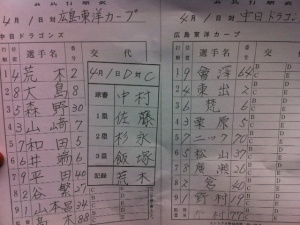 公式打順表
4月1日対広島東洋カープ
中日ドラゴンズ
打順 選手名 交代
1 4 荒木 2
2 8 大島 8
3 5 森野 30
4 3 山﨑 7
5 7 和田 5
6 6 井端 6
7 9 平田 40
8 2 谷繁 27
9 1 山本昌 34
髙木 88
4月1日D対C
球審 中村
1塁 佐藤
2塁 杉永
3塁 飯塚
記録 荒木
4月1日対中日ドラゴンズ
広島東洋カープ
選手名
1 9 會澤 64
2 4 東出 2
3 6 梵 6
4 3 栗原 5
5 7 ニック 70
6 5 松山 37
7 8 廣瀬 26
8 2 倉 40
9 1 野村 19